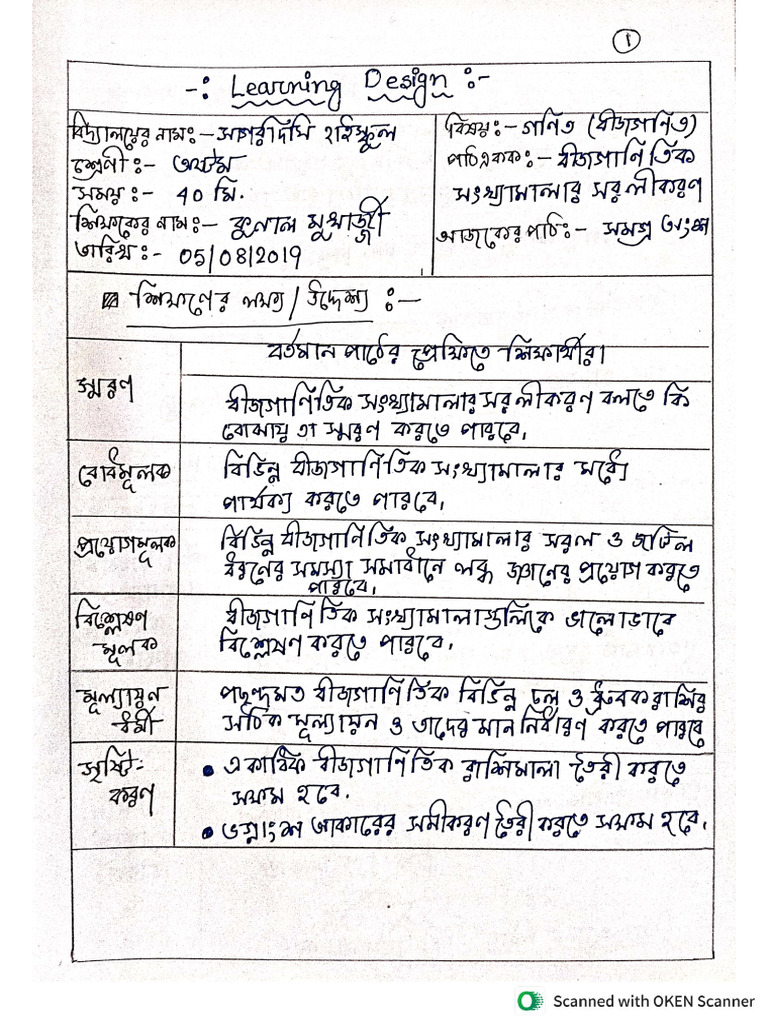 1
-: Learning Design :-
বিদ্যালয়ের নাম:- সাগরদিঘি হাইস্কুল
শ্রেণী:- অষ্টম
সময়:- 40 মি.
শিক্ষকের নাম:- কুনাল মুখার্জ্জী
তারিখ:- 05/08/2019
বিষয়:- গণিত (বীজগণিত)
পাঠ একক:- বীজগাণিতিক
সংখ্যামালার সরলীকরণ
আজকের পাঠ:- সমগ্র অংশ
শিক্ষণের লক্ষ্য / উদ্দেশ্য :-
বর্তমান পাঠের প্রেক্ষিতে শিক্ষার্থীরা
স্মরণ
বীজগাণিতিক সংখ্যামালার সরলীকরণ বলতে কি
বোঝায় তা স্মরণ করতে পারবে.
বোধমূলক
বিভিন্ন বীজগাণিতিক সংখ্যামালার মধ্যে
পার্থক্য করতে পারবে.
প্রয়োগমূলক
বিভিন্ন বীজগাণিতিক সংখ্যামালার সরল ও জটিল
ধরণের সমস্যা সমাধানে লব্ধ জ্ঞানের প্রয়োগ করতে
পারবে.
বিশ্লেষণ
মূলক
বীজগাণিতিক সংখ্যামালাগুলিকে ভালোভাবে
বিশ্লেষণ করতে পারবে.
মূল্যায়ন
ধর্মী
পছন্দমত বীজগাণিতিক বিভিন্ন চল ও ধ্রুবক রাশির
সঠিক মূল্যায়ন ও তাদের মান নির্ধারণ করতে পারবে
সৃষ্টি-
করণ
• একাধিক বীজগাণিতিক রাশিমালা তৈরী করতে
সক্ষম হবে.
• ভগ্নাংশ আকারের সমীকরণ তৈরী করতে সক্ষম হবে.
Scanned with OKEN Scanner